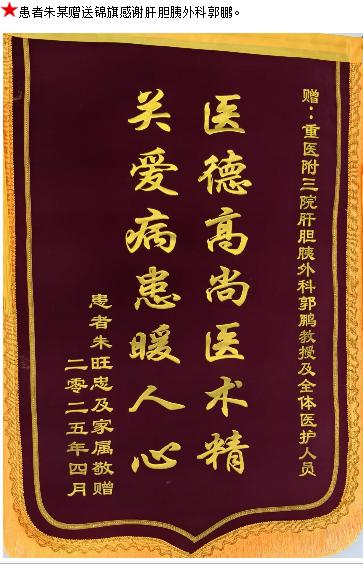 ★患者朱某赠送锦旗感谢肝胆胰外科郭鹏。
赠：重医附三院肝胆胰外科郭鹏教授及全体医护人员
医德高尚医术精
关爱病患暖人心
患者朱旺忠及家属敬赠
二零二五年四月